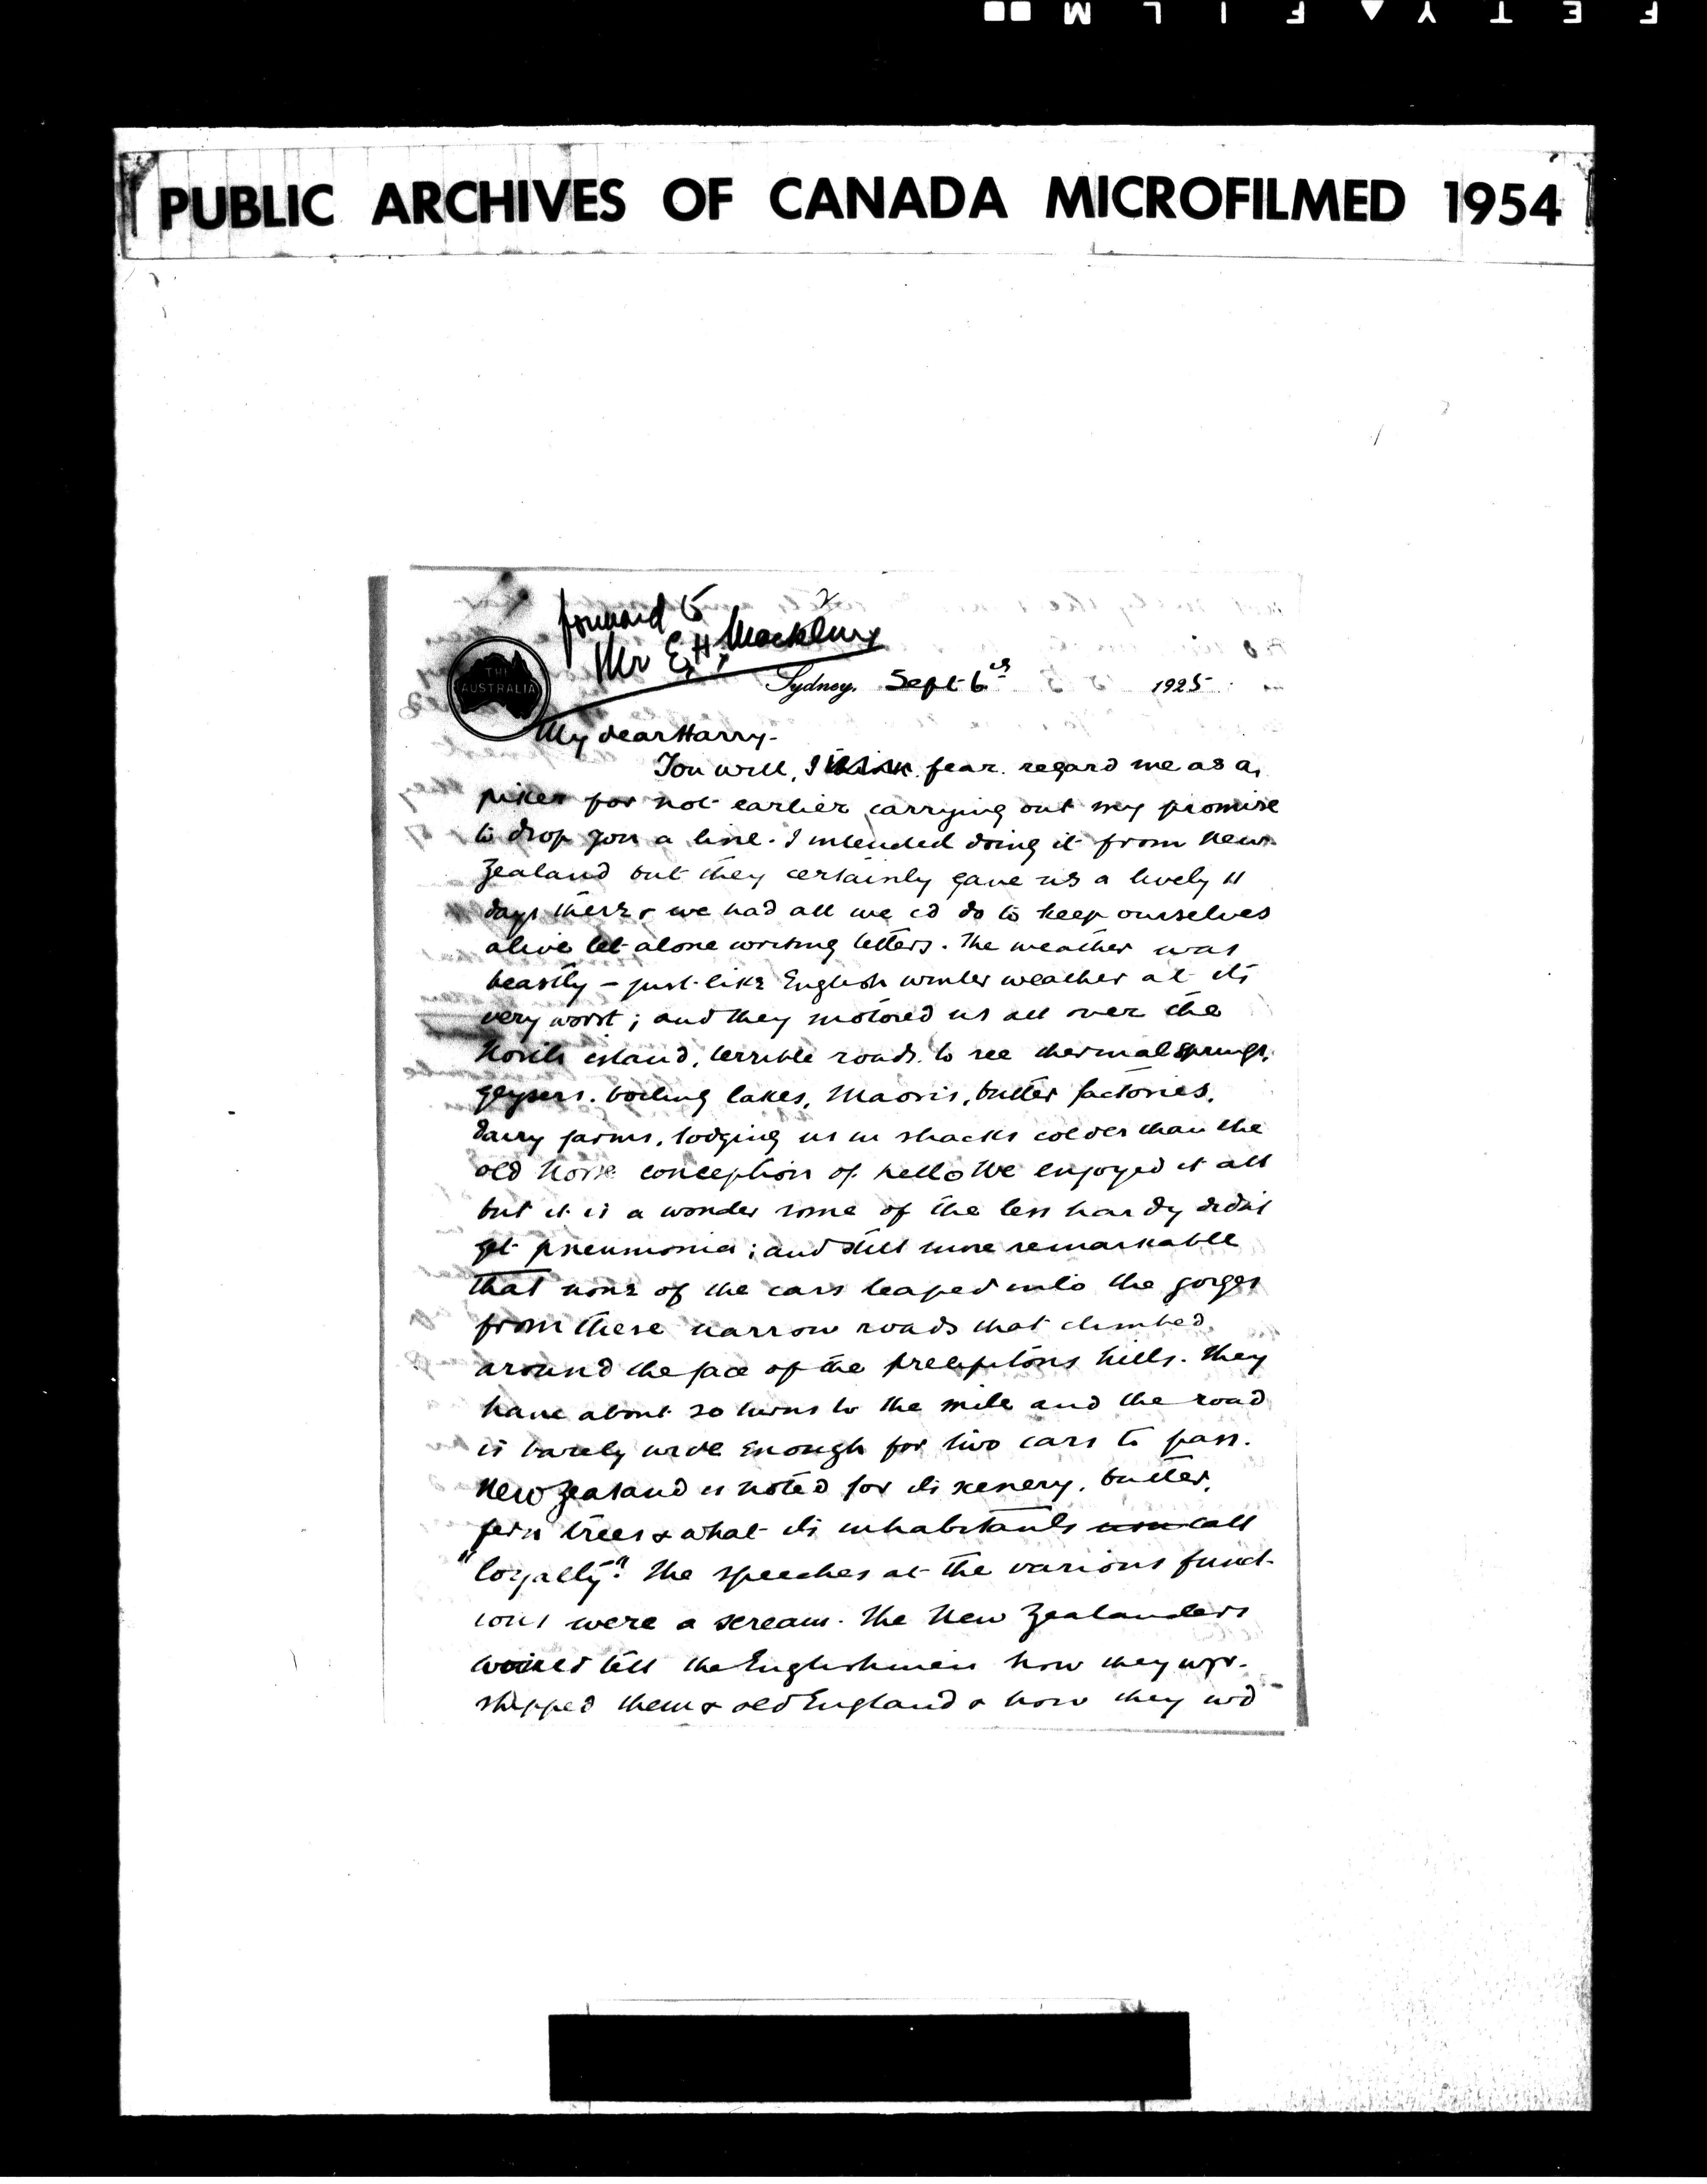 SAFETY FILM
PUBLIC ARCHIVES OF CANADA MICROFILMED 1954
forward to
Mr E. H. Macklin
THE
AUSTRALIA
Sydney, Sept 6th 1925
My dear Harry-
You will, I think fear regard me as a
piker for not earlier carrying out my promise
to drop you a line. I intended doing it from New
Zealand but they certainly gave us a lively 11
days there & we had all we cd do to keep ourselves
alive let alone writing letters. The weather was
beastly - just like English winter weather at its
very worst; and they motored us all over the
North island, terrible roads to see thermal springs,
geysers, boiling lakes, Maoris, butter factories,
dairy farms, lodging us in shacks colder than the
old Norse conception of hell. We enjoyed it all
but it is a wonder some of the less hardy didnt
get pneumonia; and still more remarkable
that none of the cars leaped into the gorges
from these narrow roads that climbed
around the face of the precipitous hills. They
have about 20 turns to the mile and the road
is barely wide enough for two cars to pass.
New Zealand is noted for its scenery, butter,
fern trees & what its inhabitants call
"loyalty". The speeches at the various funct-
ions were a scream. The New Zealanders
would tell the Englishmen how they wor-
shipped them & old England & how they wd